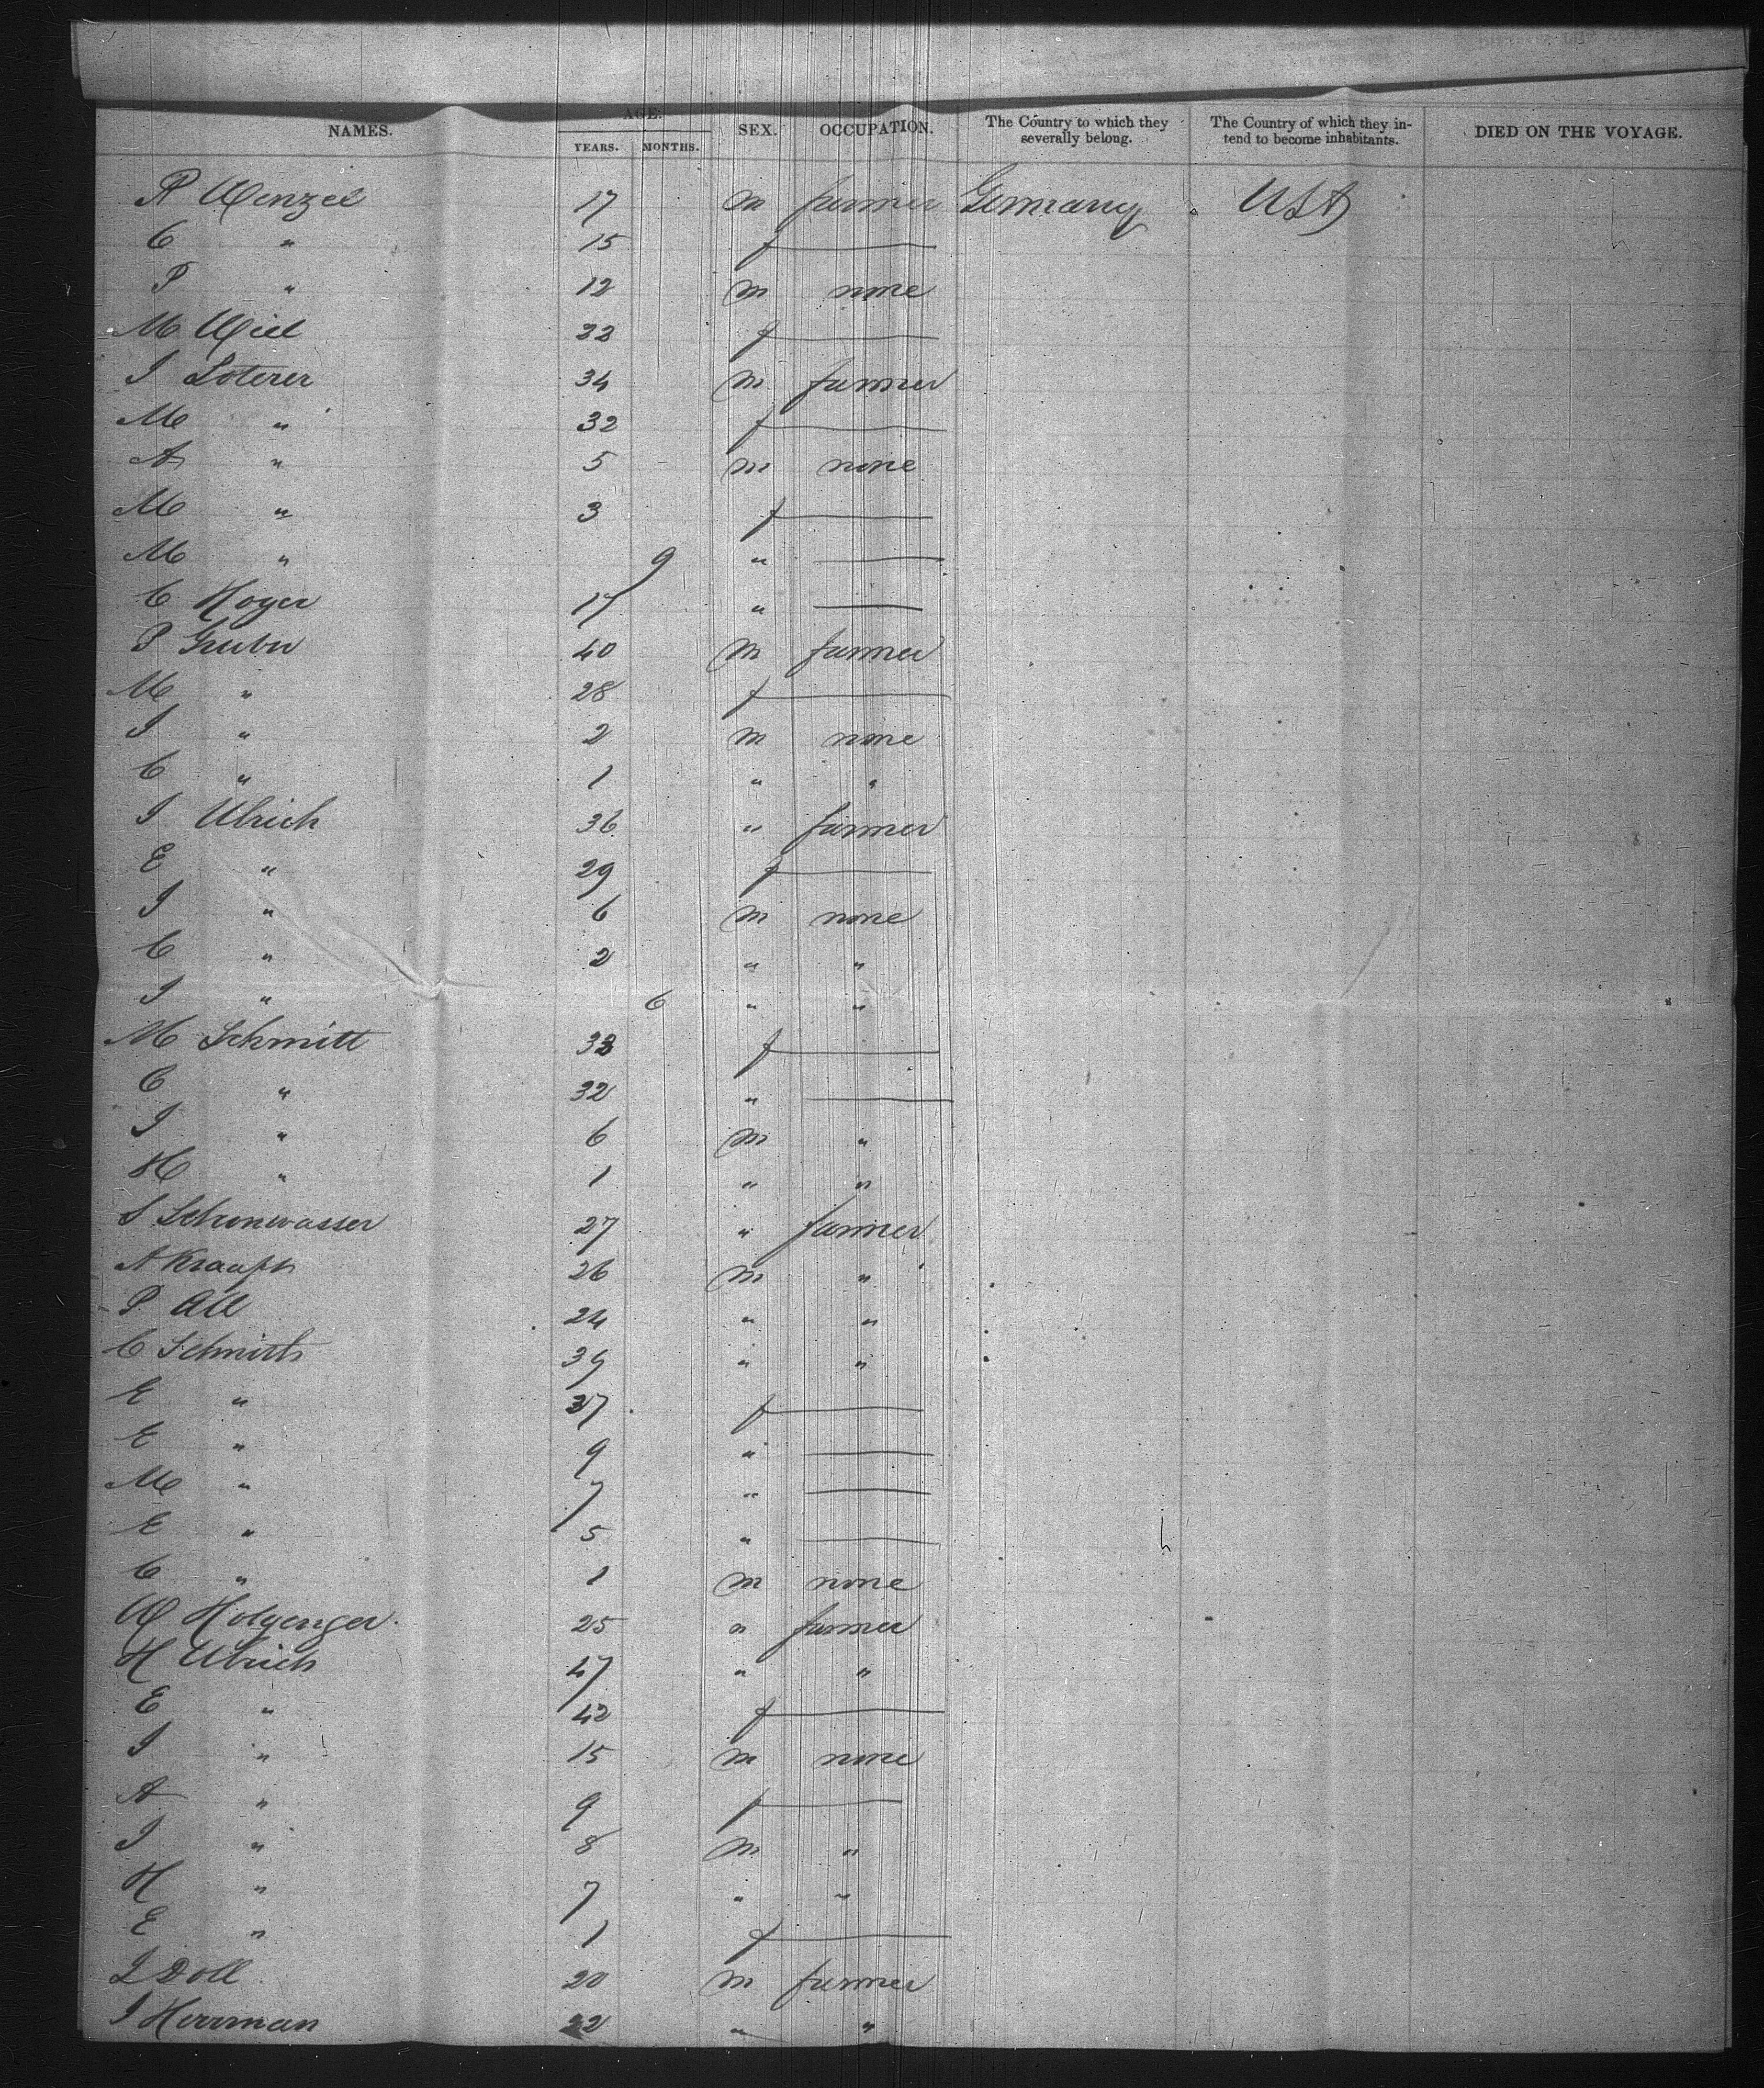 NAMES. AGE. YEARS. MONTHS. SEX. OCCUPATION. The Country to which they severally belong. The Country of which they intend to become inhabitants. DIED ON THE VOYAGE.
P Wenzel 17 m farmer Germany USA
C " 15 f —
P " 12 m none
M Will 22 f —
J Loterer 34 m farmer
M " 32 f —
A " 5 m none
M " 3 f —
M " 9 " —
C Hoger 17 " —
P Gruber 40 m farmer
M " 28 f —
J " 2 m none
C " 1 " "
J Ulrich 36 " farmer
E " 29 f —
J " 6 m none
C " 2 " "
J " 6 " "
M Schmitt 33 f —
C " 32 " —
J " 6 m "
H " 1 " "
S Schonwasser 27 " farmer
A Kraaft 26 m "
P All 24 " "
C Schmith 39 " "
E " 37 f —
E " 9 " —
M " 7 " —
E " 5 " —
C " 1 m none
W 25 " farmer
H Ulrich 47 " "
E " 42 f —
J " 15 m none
A " 9 f —
J " 8 m "
H " 7 " "
E " 1 f —
L Doll 20 m farmer
J Herrman 22 " "